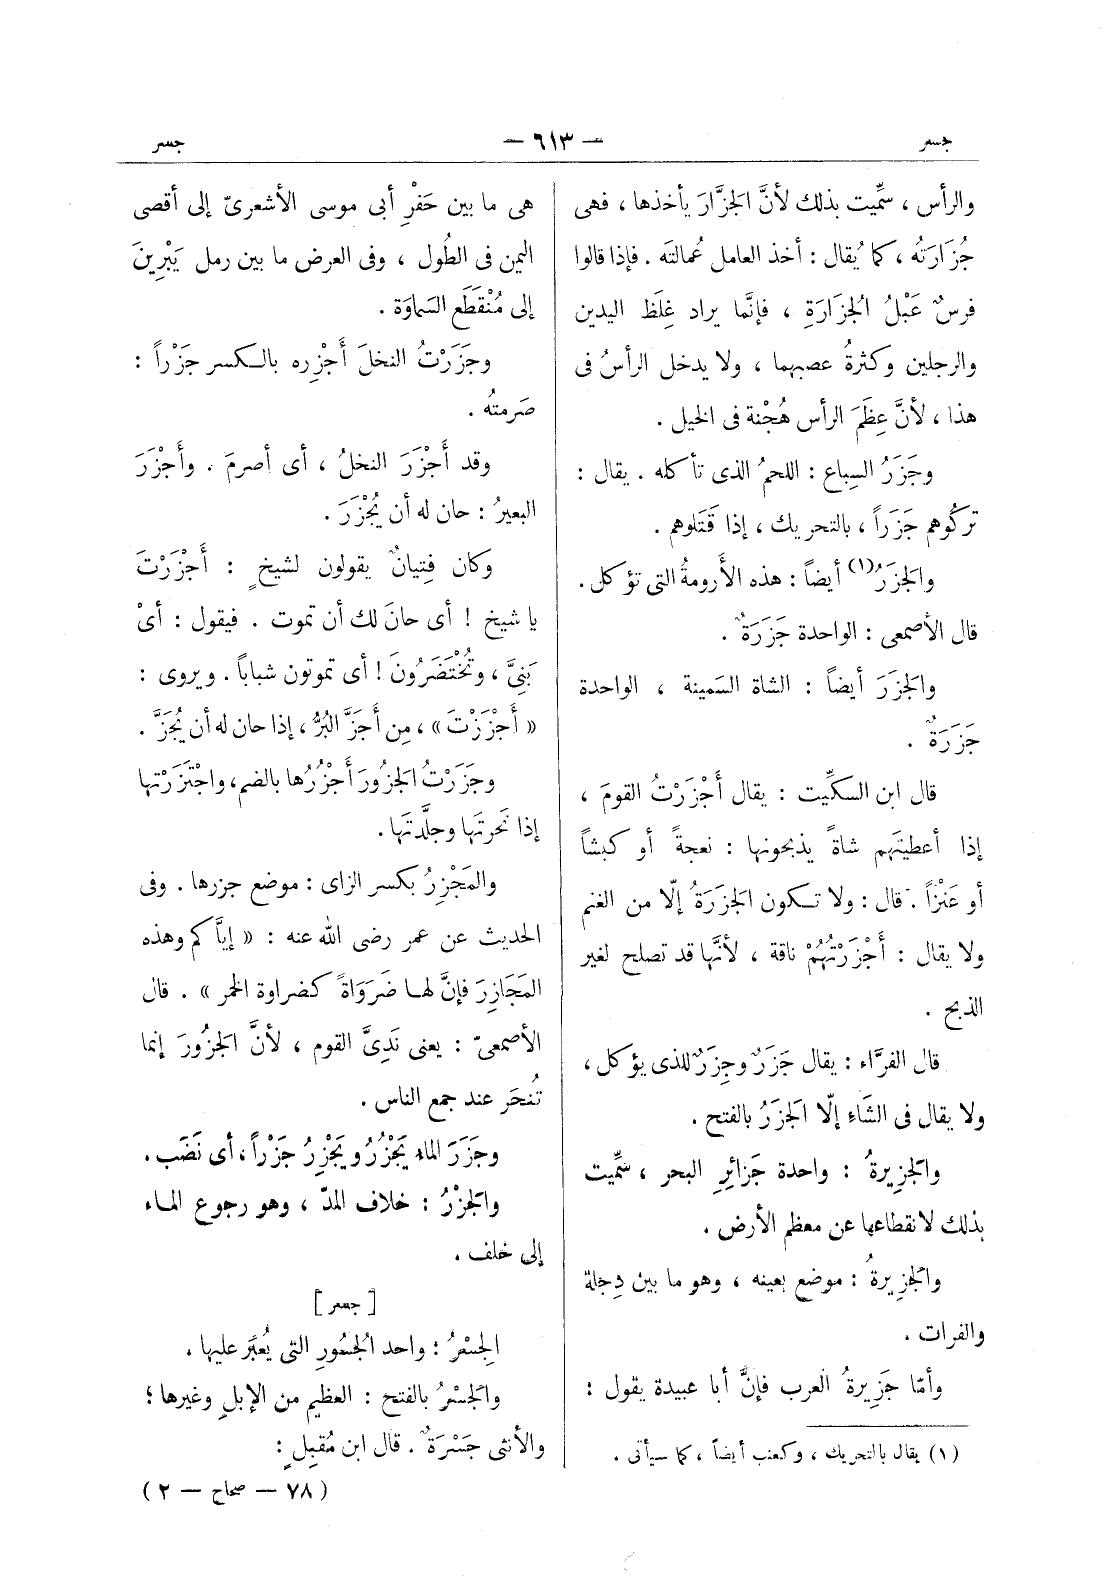 جسر — ٦١٣ — جسر
والرأس ، سمِّيت بذلك لأنَّ الجزَّارَ يأخذها ، فهى
جُزَارَتُه ، كما يُقال : أخذ العامل عُمالتَه . فإذا قالوا
فرسٌ عَبْلُ الجُزَارَةِ ، فإنَّما يراد غِلَظ اليدين
والرجلين وكثرةُ عصبهما ، ولا يدخل الرأسُ فى
هذا ، لأنَّ عِظَمَ الرأس هُجْنة فى الخيل .
وجَزَرُ السِباع : اللحمُ الذى تأكله . يقال :
تركُوهم جَزَراً ، بالتحريك ، إذا قَتَلوهم .
والجزَرُ(١) أيضاً : هذه الأَرومةُ التى تؤكل .
قال الأصمعى : الواحدة جَزَرَةٌ .
والجزَرَ أيضاً : الشاة السَمينة ، الواحدة
جَزَرَةٌ .
قال ابن السكِّيت : يقال أَجْزَرْتُ القومَ ،
إذا أعطيتَهم شاةً يذبحونها : نعجةً أو كبشاً
أو عَنْزاً . قال : ولا تكون الجزَرَةُ إلّا من الغنم
ولا يقال : أَجْزَرْتُهُمْ ناقة ، لأنَّها قد تصلح لغير
الذبح .
قال الفرَّاء : يقال جَزَرٌ وجِزَرٌ للذى يؤكل ،
ولا يقال فى الشَاءِ إلّا الجزَرُ بالفتح .
والجزِيرةُ : واحدة جَزائرِ البحر ، سمِّيت
بذلك لانقطاعها عن معظم الأرض .
والجزِيرةُ : موضع بعينه ، وهو ما بين دِجلة
والفرات .
وأمّا جَزِيرةُ العرب فإنَّ أبا عبيدة يقول :
(١) يقال بالتحريك ، وكعنب أيضاً ، كما سيأتى .
هى ما بين حَفْرِ أبى موسى الأشعرىّ إلى أقصى
اليمن فى الطُول ، وفى العرض ما بين رمل يَبْرِينَ
إلى مُنْقَطَع السَماوَة .
وجَزَرْتُ النخلَ أَجْزِره بالكسر جَزْراً :
صَرمتهُ .
وقد أَجْزَرَ النخلُ ، أى أصرمَ . وأَجْزَرَ
البعيرُ : حان له أن يُجْزَرَ .
وكان فِتيانٌ يقولون لشيخٍ : أَجْزَرْتَ
يا شيخ ! أى حانَ لك أن تموت . فيقول : أىْ
بَنِىَّ ، وتُخْتَضَرُونَ ! أى تموتون شباباً . ويروى :
« أَجْزَزْتَ » ، مِن أَجَزَّ البُرُّ ، إذا حان له أن يُجَزَّ .
وجَزَرْتُ الجزُورَ أَجْزُرُها بالضم، واجْتَزَرْتها
إذا نحرتَها وجلَّدتَها .
والمَجْزِرُ بكسر الزاى : موضع جزرها . وفى
الحديث عن عمر رضى الله عنه : « إيَّاكم وهذه
المَجَازِرَ فإنَّ لها ضَرَوَاةً كضراوة الخمر » . قال
الأصمعىّ : يعنى نَدِىَّ القوم ، لأنَّ الجزُورَ إنما
تُنحَر عند جمع الناس .
وجَزَرَ الماء يَجْزُرُ ويَجْزِرُ جَزْراً ، أى نَضَب .
والجزْرُ : خلاف المدّ ، وهو رجوع الماء
إلى خلف .
[ جسر ]
الجِسْرُ : واحد الجُسُورِ التى يُعبَر عليها .
والجَسْرُ بالفتح : العظيم من الإبلِ وغيرها ؛
والأنثى جَسْرَةٌ . قال ابن مُقبِلٍ :
( ٧٨ — صحاح — ٢ )